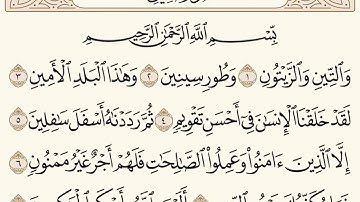 بِسْمِ ٱللَّهِ ٱلرَّحْمَٰنِ ٱلرَّحِيمِ
وَٱلتِّينِ وَٱلزَّيْتُونِ ١ وَطُورِ سِينِينَ ٢ وَهَٰذَا ٱلْبَلَدِ ٱلْأَمِينِ ٣
لَقَدْ خَلَقْنَا ٱلْإِنسَٰنَ فِىٓ أَحْسَنِ تَقْوِيمٍ ٤ ثُمَّ رَدَدْنَٰهُ أَسْفَلَ سَٰفِلِينَ ٥
إِلَّا ٱلَّذِينَ ءَامَنُوا۟ وَعَمِلُوا۟ ٱلصَّٰلِحَٰتِ فَلَهُمْ أَجْرٌ غَيْرُ مَمْنُونٍ ٦